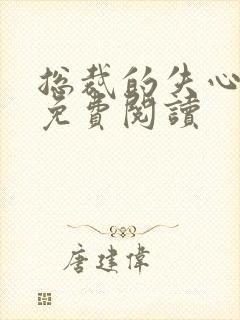 总裁的失心
免費閱讀
唐建偉